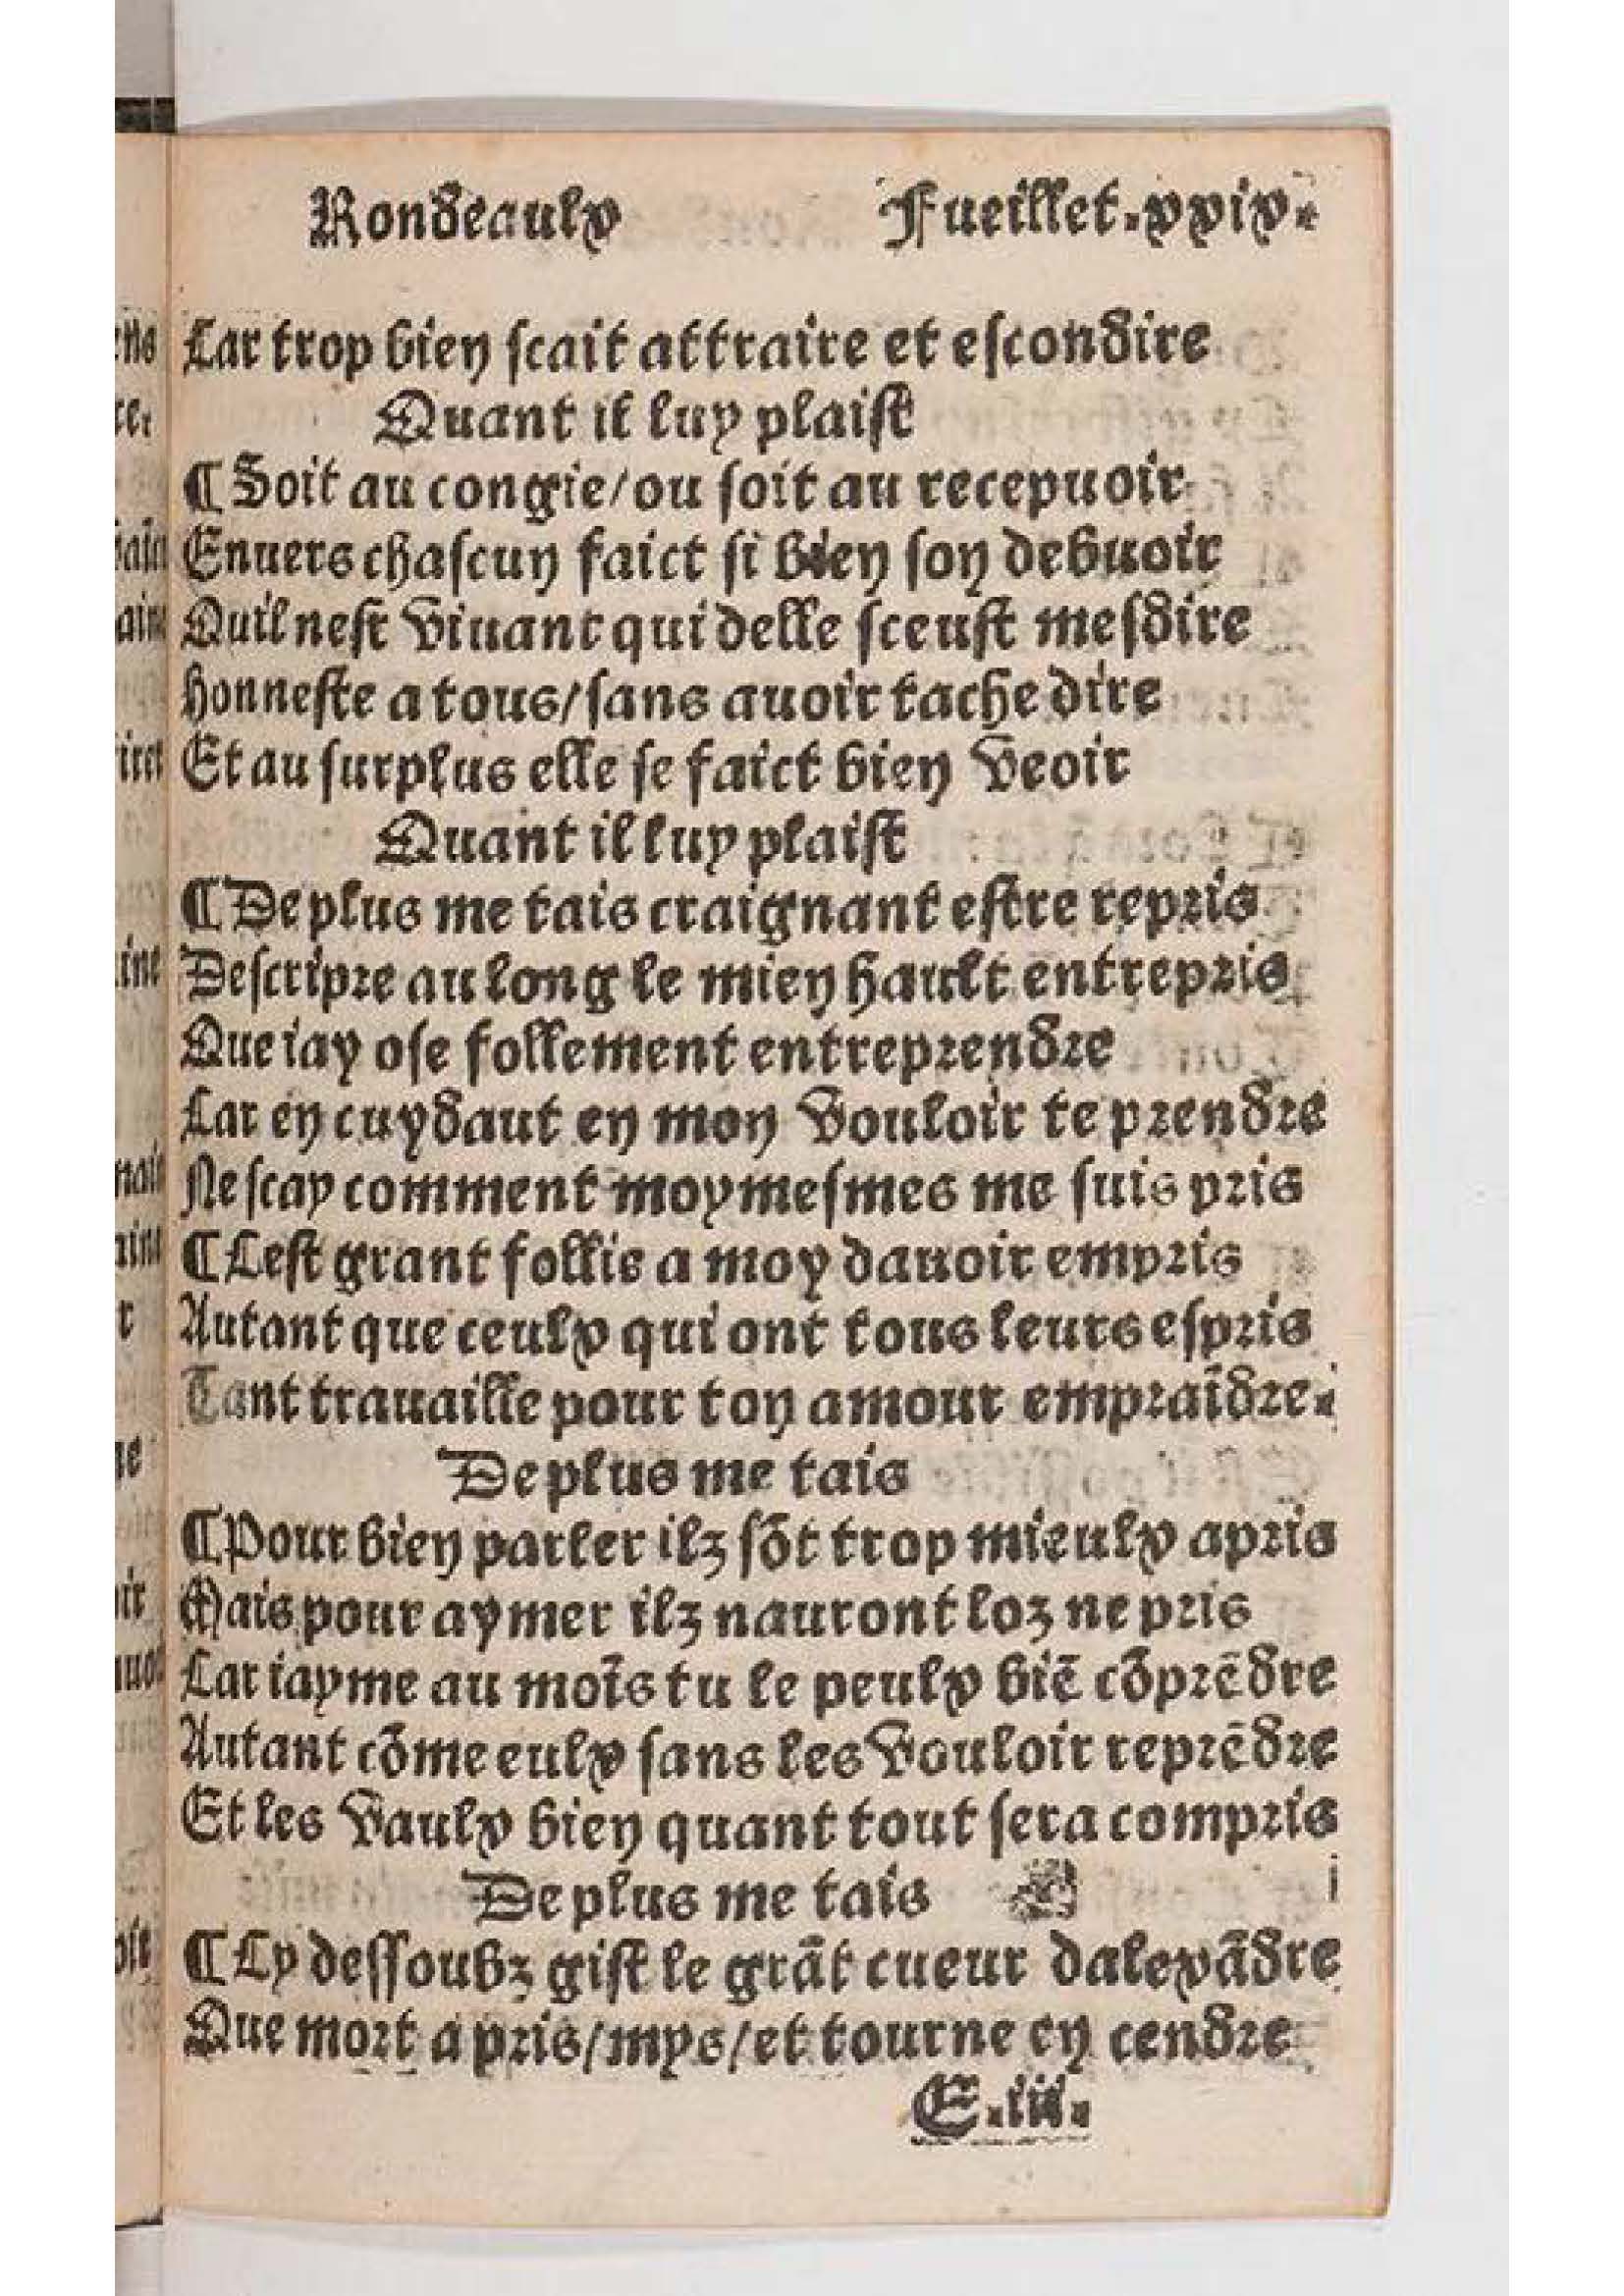 Rondeaulx Fueillet.xxix.
Car trop bien scait attraire et escondire
Quant il luy plaist
¶ Soit au congie/ou soit au recepuoir
Enuers chascun faict si bien son debuoir
Quil nest viuant qui delle sceust mesdire
Honneste a tous/sans auoir tache dire
Et au surplus elle se faict bien veoir
Quant il luy plaist
¶ De plus me tais craignant estre repris
Descripre au long le mien hault entrepris
Que iay ose follement entreprendre
Car en cuydaut en mon vouloir te prendre
Ne scay comment moymesmes me suis pris
¶ Cest grant follie a moy dauoir empris
Autant que ceulx qui ont tous leurs espris
Tant trauaille pour ton amour empraĩdre.
De plus me tais
¶ Pour bien parler ilz sõt trop mieulx apris
Mais pour aymer ilz nauront loz ne pris
Car iayme au moĩs tu le peulx biẽ cõprẽdre
Autant cõme eulx sans les vouloir reprẽdre
Et les vaulx bien quant tout sera compris
De plus me tais
¶ Cy dessoubz gist le grãt cueur dalexãdre
Que mort a pris/mys/et tourne en cendre
E.iii.